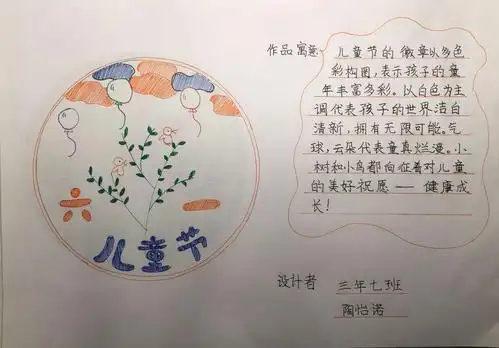 作品寓意: 儿童节的徽章以多色
彩构图,表示孩子的童
年丰富多彩。以白色为主
调代表孩子的世界洁白
清新,拥有无限可能。气
球,云朵代表童真烂漫。小
树和小鸟都向征着对儿童
的美好祝愿——健康成
长!
六一
儿童节
设计者 三年七班
陶怡诺